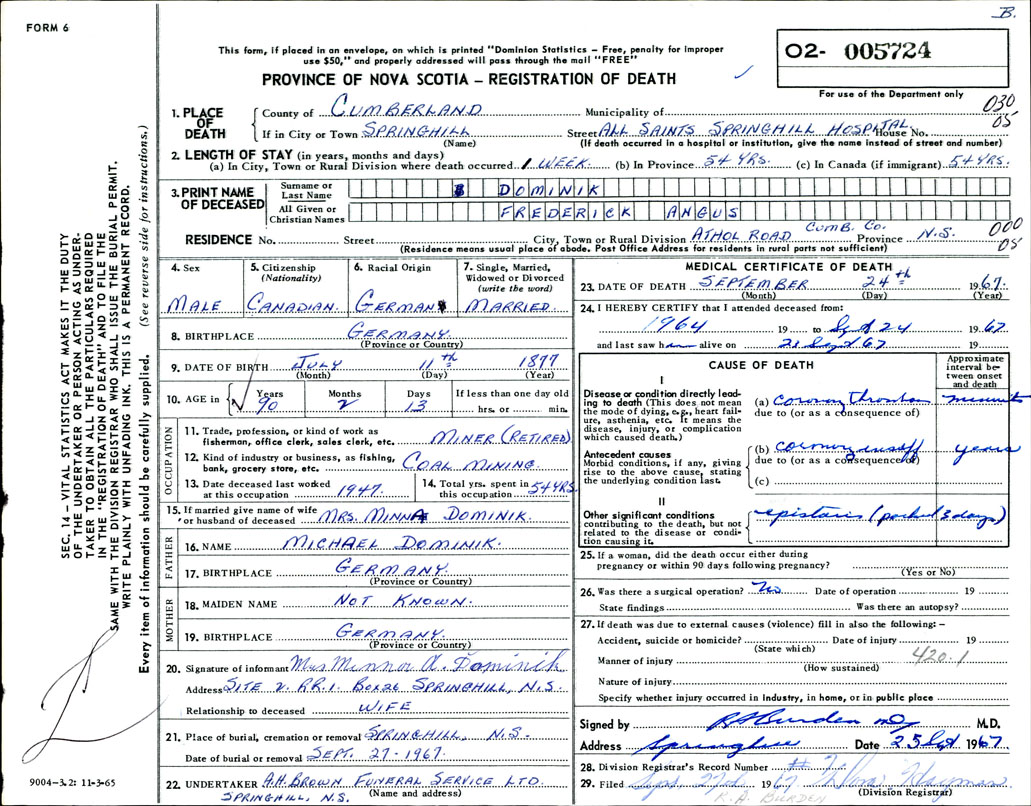 B.
FORM 6
This form, if placed in an envelope, on which is printed "Dominion Statistics – Free, penalty for improper
use $50," and properly addressed will pass through the mail "FREE"
PROVINCE OF NOVA SCOTIA – REGISTRATION OF DEATH
02- 005724
For use of the Department only
030
05
1. PLACE OF DEATH
County of CUMBERLAND Municipality of
If in City or Town SPRINGHILL Street ALL SAINTS SPRINGHILL HOSPITAL House No.
(Name) (If death occurred in a hospital or institution, give the name instead of street and number)
2. LENGTH OF STAY (in years, months and days)
(a) In City, Town or Rural Division where death occurred 1 WEEK. (b) In Province 54 YRS. (c) In Canada (if immigrant) 54 YRS.
3. PRINT NAME OF DECEASED
Surname or Last Name DOMINIK
All Given or Christian Names FREDERICK ANGUS
RESIDENCE No. Street City, Town or Rural Division ATHOL ROAD CUMB. CO. Province N.S.
(Residence means usual place of abode. Post Office Address for residents in rural parts not sufficient)
000
05
4. Sex
MALE
5. Citizenship (Nationality)
CANADIAN.
6. Racial Origin
GERMAN
7. Single, Married, Widowed or Divorced (write the word)
MARRIED.
8. BIRTHPLACE GERMANY.
(Province or Country)
9. DATE OF BIRTH JULY 11th 1877
(Month) (Day) (Year)
10. AGE in Years Months Days If less than one day old
90 2 13 hrs. or min.
OCCUPATION
11. Trade, profession, or kind of work as fisherman, office clerk, sales clerk, etc. MINER (RETIRED)
12. Kind of industry or business, as fishing, bank, grocery store, etc. COAL MINING.
13. Date deceased last worked at this occupation 1947.
14. Total yrs. spent in this occupation 54 YRS.
15. If married give name of wife or husband of deceased MRS. MINNA DOMINIK.
FATHER
16. NAME MICHAEL DOMINIK.
17. BIRTHPLACE GERMANY.
(Province or Country)
MOTHER
18. MAIDEN NAME NOT KNOWN.
19. BIRTHPLACE GERMANY.
(Province or Country)
20. Signature of informant Mrs Minna A. Dominik
Address SITE 2. RR.1. BOX 26 SPRINGHILL, N.S.
Relationship to deceased WIFE
21. Place of burial, cremation or removal SPRINGHILL, N.S.
Date of burial or removal SEPT. 27-1967.
22. UNDERTAKER A.H. BROWN FUNERAL SERVICE LTD.
SPRINGHILL, N.S. (Name and address)
MEDICAL CERTIFICATE OF DEATH
23. DATE OF DEATH SEPTEMBER 24th 1967.
(Month) (Day) (Year)
24. I HEREBY CERTIFY that I attended deceased from:
1964 19 to Sept 24 1967
and last saw him alive on 21 Sept 67 19
CAUSE OF DEATH
Approximate interval between onset and death
I
Disease or condition directly leading to death (This does not mean the mode of dying, e.g., heart failure, asthenia, etc. It means the disease, injury, or complication which caused death.)
(a) coronary thrombosis minutes
due to (or as a consequence of)
Antecedent causes
Morbid conditions, if any, giving rise to the above cause, stating the underlying condition last.
(b) coronary insuff years
due to (or as a consequence of)
(c)
II
Other significant conditions contributing to the death, but not related to the disease or condition causing it.
epistaxis (packed 3 days)
25. If a woman, did the death occur either during pregnancy or within 90 days following pregnancy?
(Yes or No)
26. Was there a surgical operation? No Date of operation 19
State findings Was there an autopsy?
27. If death was due to external causes (violence) fill in also the following: –
Accident, suicide or homicide? Date of injury 19
(State which)
Manner of injury 420.1
(How sustained)
Nature of injury
Specify whether injury occurred in industry, in home, or in public place
Signed by R A Burden MD M.D.
Address Springhill Date 25 Sept 1967
28. Division Registrar's Record Number #
29. Filed Sept 27th 1967
(Division Registrar)
R.A. BURDEN
SEC. 14 – VITAL STATISTICS ACT MAKES IT THE DUTY
OF THE UNDERTAKER OR PERSON ACTING AS UNDER-
TAKER TO OBTAIN ALL THE PARTICULARS REQUIRED
IN THE "REGISTRATION OF DEATH" AND TO FILE THE
SAME WITH THE DIVISION REGISTRAR WHO SHALL ISSUE THE BURIAL PERMIT.
WRITE PLAINLY WITH UNFADING INK. THIS IS A PERMANENT RECORD.
Every item of information should be carefully supplied. (See reverse side for instructions.)
9004-3.2: 11-3-65